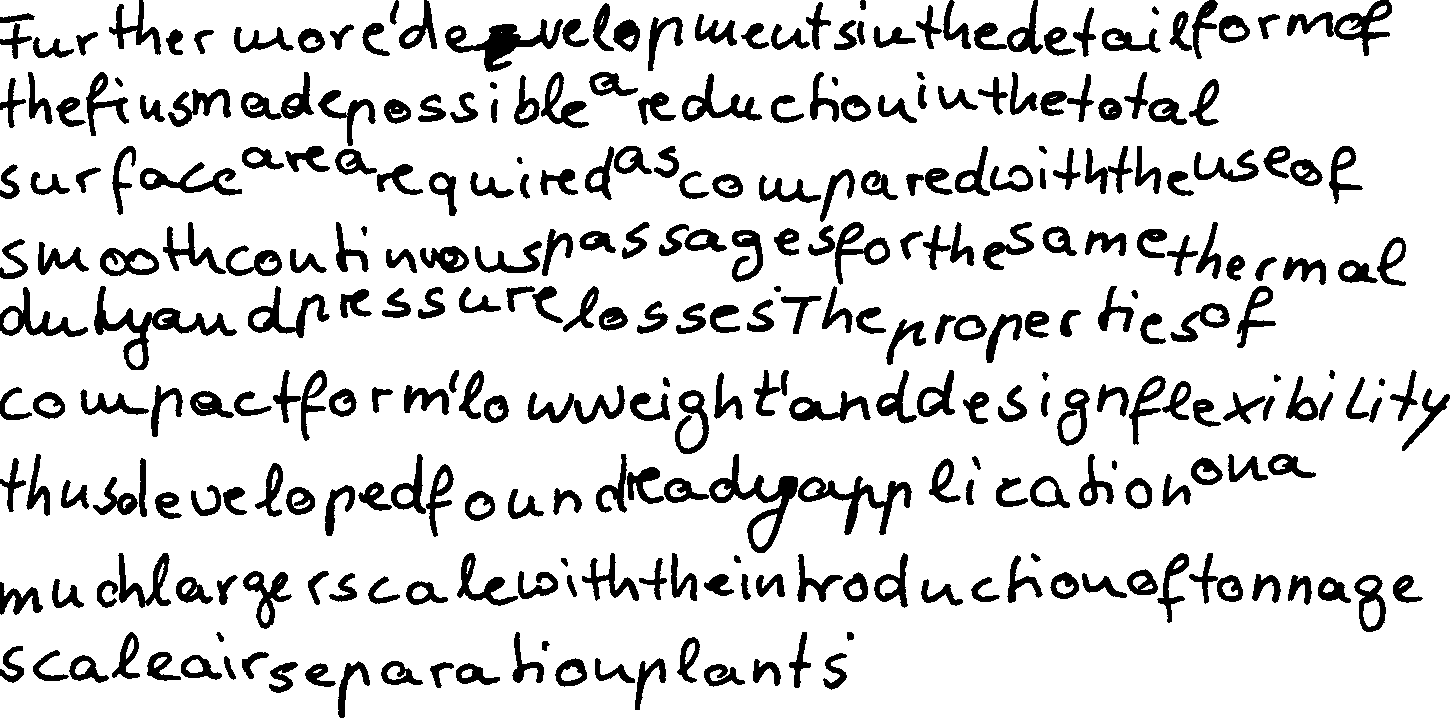 Furthermore'developmentsinthedetailformof
thefinsmadepossibleareductioninthetotal
surfacearearequiredascomparedwiththeuseof
smoothcontinuouspassagesforthesamethermal
dutyandpressurelosses.Thepropertiesof
compactform'lowweight'anddesignflexibility
thusdevelopedfoundreadyapplicationona
muchlargerscalewiththeintroductionoftonnage
scaleairseparationplants.